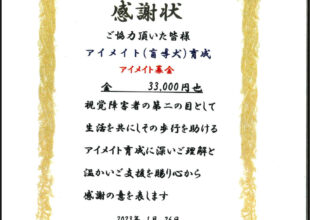 感謝状
ご協力頂いた皆様
アイメイト(盲導犬)育成
アイメイト基金
金 33,000円也
視覚障害者の第二の目として
生活を共にしその歩行を助ける
アイメイト育成に深いご理解と
温かいご支援を賜り心から
感謝の意を表します
2023年 1月 26日